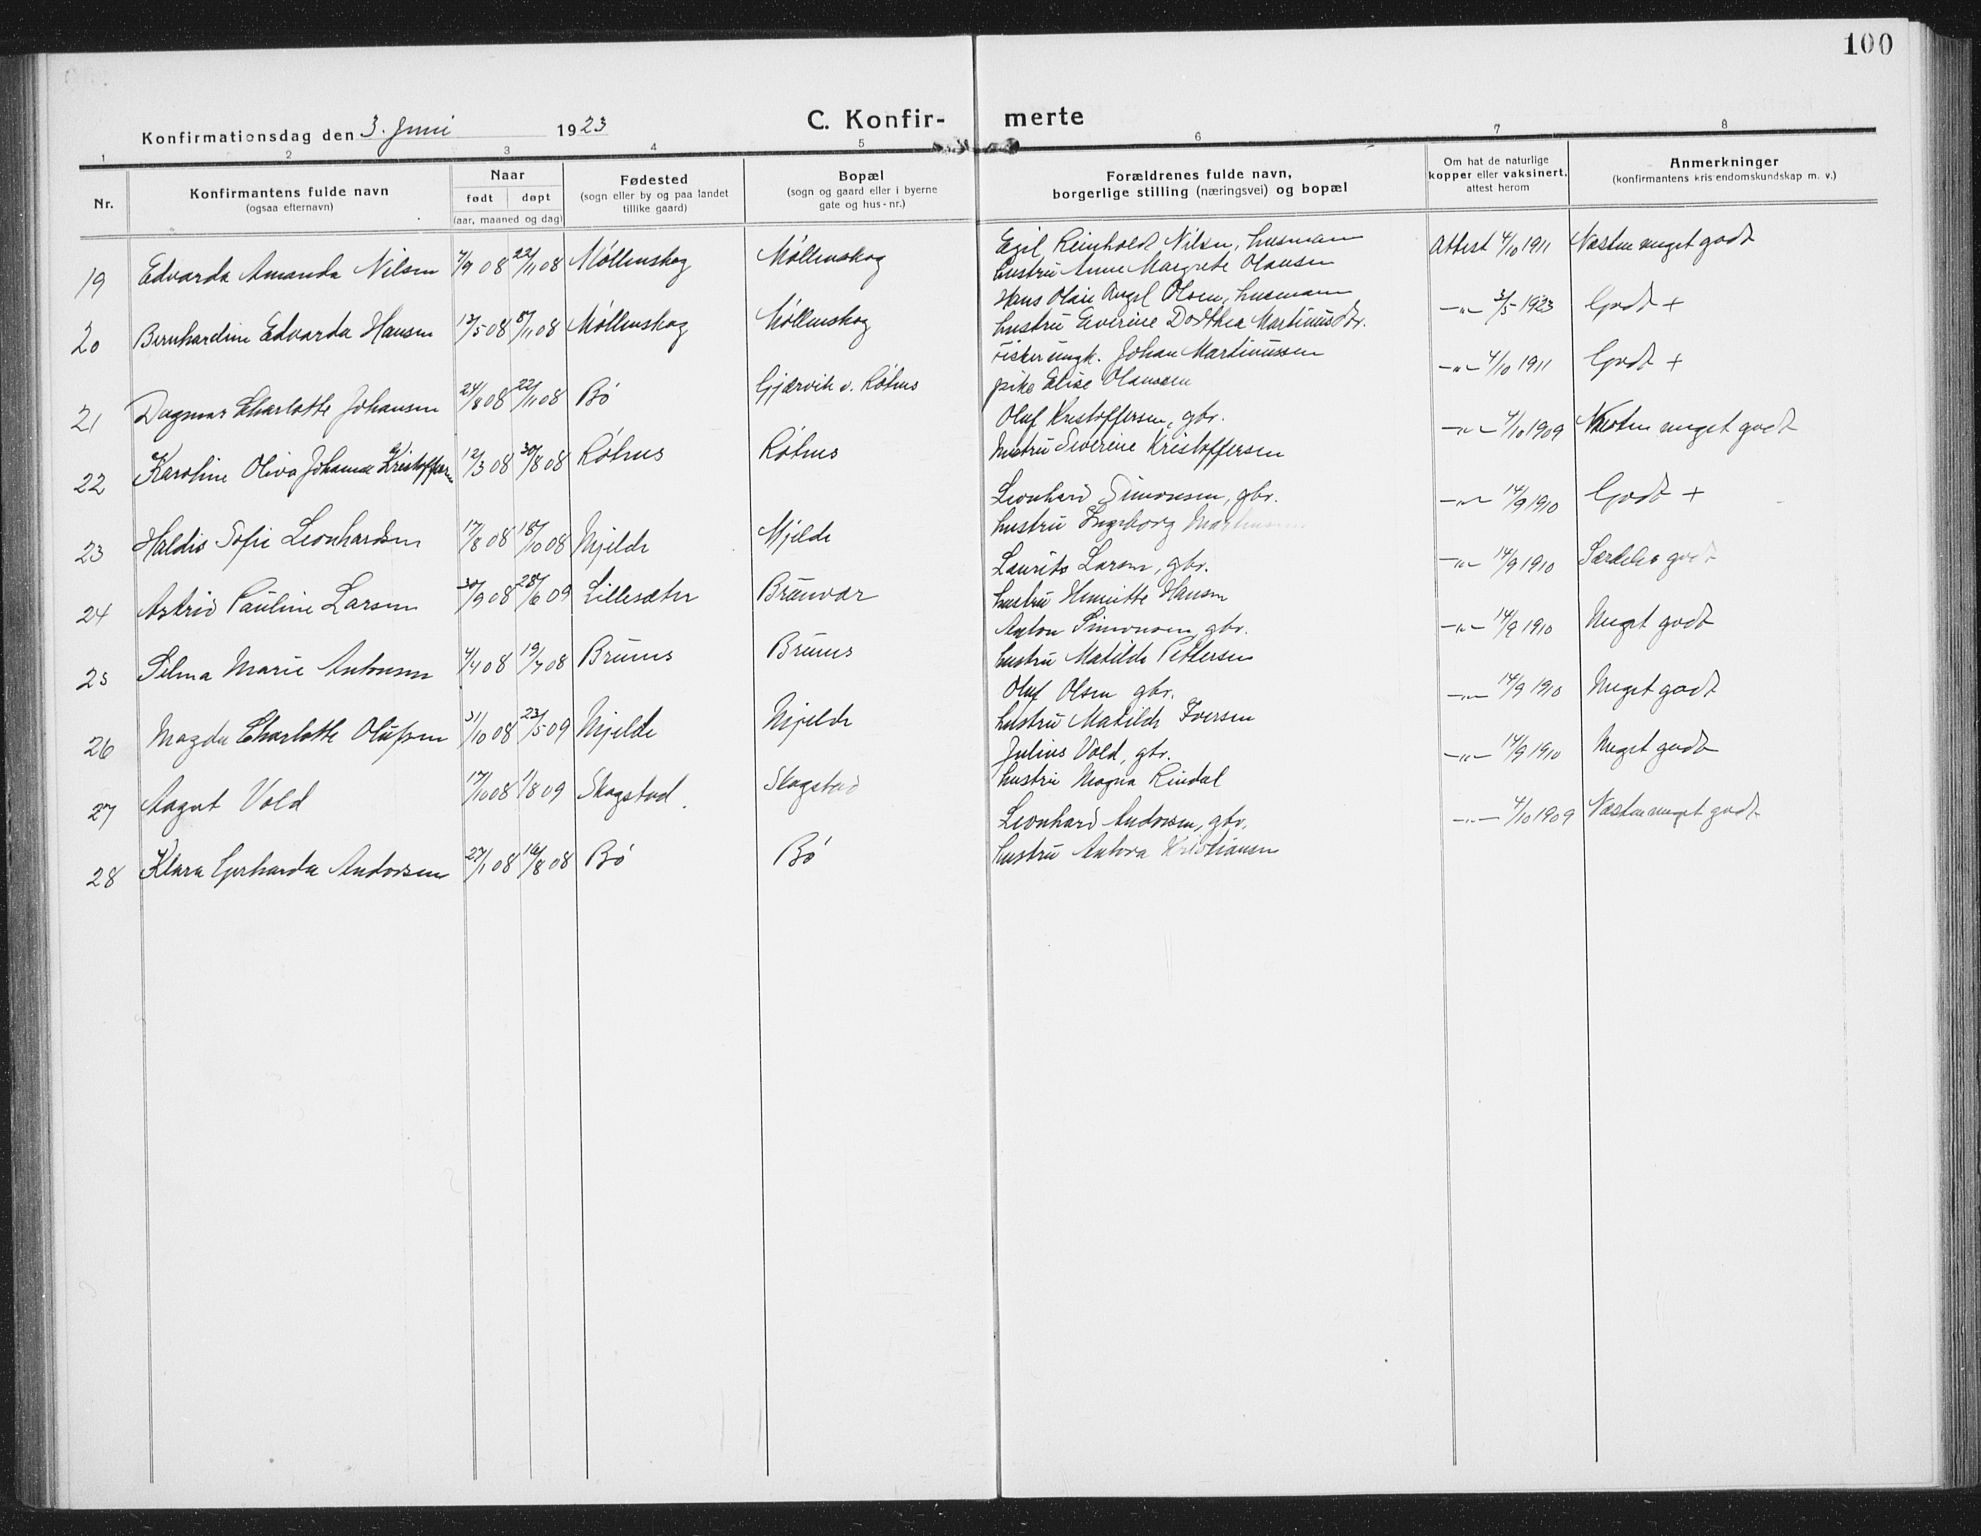 100
Konfirmationsdag den 3. Juni 1923 C. Konfir- merte
1 2 3 4 5 6 7 8
Nr. Konfirmantens fulde navn (ogsaa efternavn) Naar født døpt (aar, maaned og dag) Fødested (sogn eller by og paa landet tillike gaard) Bopæl (sogn og gaard eller i byerne gate og hus-nr.) Forældrenes fulde navn, borgerlige stilling (næringsvei) og bopæl Om hat de naturlige kopper eller vaksinert, attest herom Anmerkninger (konfirmantens kristendomskundskap m. v.)
19 Edvarda Amanda Nilsen 7/9 08 22/11 08 Møllenskog Møllenskog Egil Reinholdt Nilsen, husmann Attest 4/10 1911 Næsten meget godt
hustru Anne Margrete Olausen
20 Bernhardine Edvarda Hansen 13/5 08 8/11 08 Møllenskog Møllenskog Hans Olaus Angel Olsen, husmann -"- 3/5 1923 Godt +
hustru Everine Dorthea Martinusdtr.
21 Dagmar Charlotte Johansen 24/8 08 22/11 08 Bø Gjærvik v. Røhus fisker ungk. Johan Martinussen -"- 4/10 1911 Godt +
pike Elise Olaussen
22 Karoline Oliva Johanna Kristoffersen 12/3 08 30/8 08 Røhus Røhus Oluf Kristoffersen, gbr. -"- 4/10 1909 Næsten meget godt
hustru Severine Kristoffersen
23 Haldis Sofie Leonhardsen 17/8 08 18/10 08 Mjelde Mjelde Leonhard Simonsen, gbr. -"- 14/9 1910 Godt +
hustru Ingeborg
24 Astrid Pauline Larsen 30/9 08 28/6 09 Lillesæter Brunvær Laurits Larsen, gbr. -"- 14/9 1910 Særdeles godt
hustru Henriette Hansen
25 Selma Marie Antonsen 4/4 08 19/7 08 Brunes Brunes Anton Simonsen, gbr. -"- 14/9 1910 Meget godt
hustru Matilde Pettersen
26 Magda Charlotte Olufsen 31/10 08 23/5 09 Mjelde Mjelde Oluf Olsen gbr. -"- 14/9 1910 Meget godt
hustru Matilde Iversen
27 Aagot Vold 17/10 08 1/8 09 Skogstad Skogstad Julius Vold, gbr. -"- 14/9 1910 Meget godt
hustru Magna Rindal
28 Klara Gerharda Andorsen 27/1 08 16/8 08 Bø Bø Leonhard Andorsen, gbr. -"- 4/10 1909 Næsten meget godt
hustru Antora Kristiansen